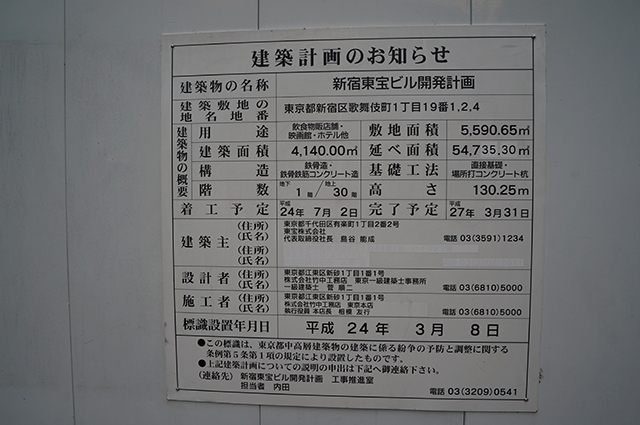 建築計画のお知らせ
建築物の名称 新宿東宝ビル開発計画
建築敷地の地名地番 東京都新宿区歌舞伎町1丁目19番1,2,4
建築物の概要
用途 飲食物販店舗・映画館・ホテル他 敷地面積 5,590.65㎡
建築面積 4,140.00㎡ 延べ面積 54,735.30㎡
構造 鉄骨造・鉄骨鉄筋コンクリート造 基礎工法 直接基礎・場所打コンクリート杭
階数 地下1階/地上30階 高さ 130.25m
着工予定 平成24年 7月 2日 完了予定 平成27年 3月31日
建築主 (住所)(氏名) 東京都千代田区有楽町1丁目2番2号
東宝株式会社
代表取締役社長 島谷 能成 電話 03(3591)1234
(住所)(氏名)
設計者 (住所)(氏名) 東京都江東区新砂1丁目1番1号
株式会社竹中工務店 東京一級建築士事務所
一級建築士 菅 順二 電話 03(6810)5000
施工者 (住所)(氏名) 東京都江東区新砂1丁目1番1号
株式会社竹中工務店 東京本店
執行役員 本店長 相模 友行 電話 03(6810)5000
標識設置年月日 平成 24年 3月 8日
●この標識は、東京都中高層建築物の建築に係る紛争の予防と調整に関する
条例第5条第1項の規定により設置したものです。
●上記建築計画についての説明の申出は下記へ御連絡下さい。
(連絡先) 新宿東宝ビル開発計画 工事推進室
担当者 内田 電話 03(3209)0541